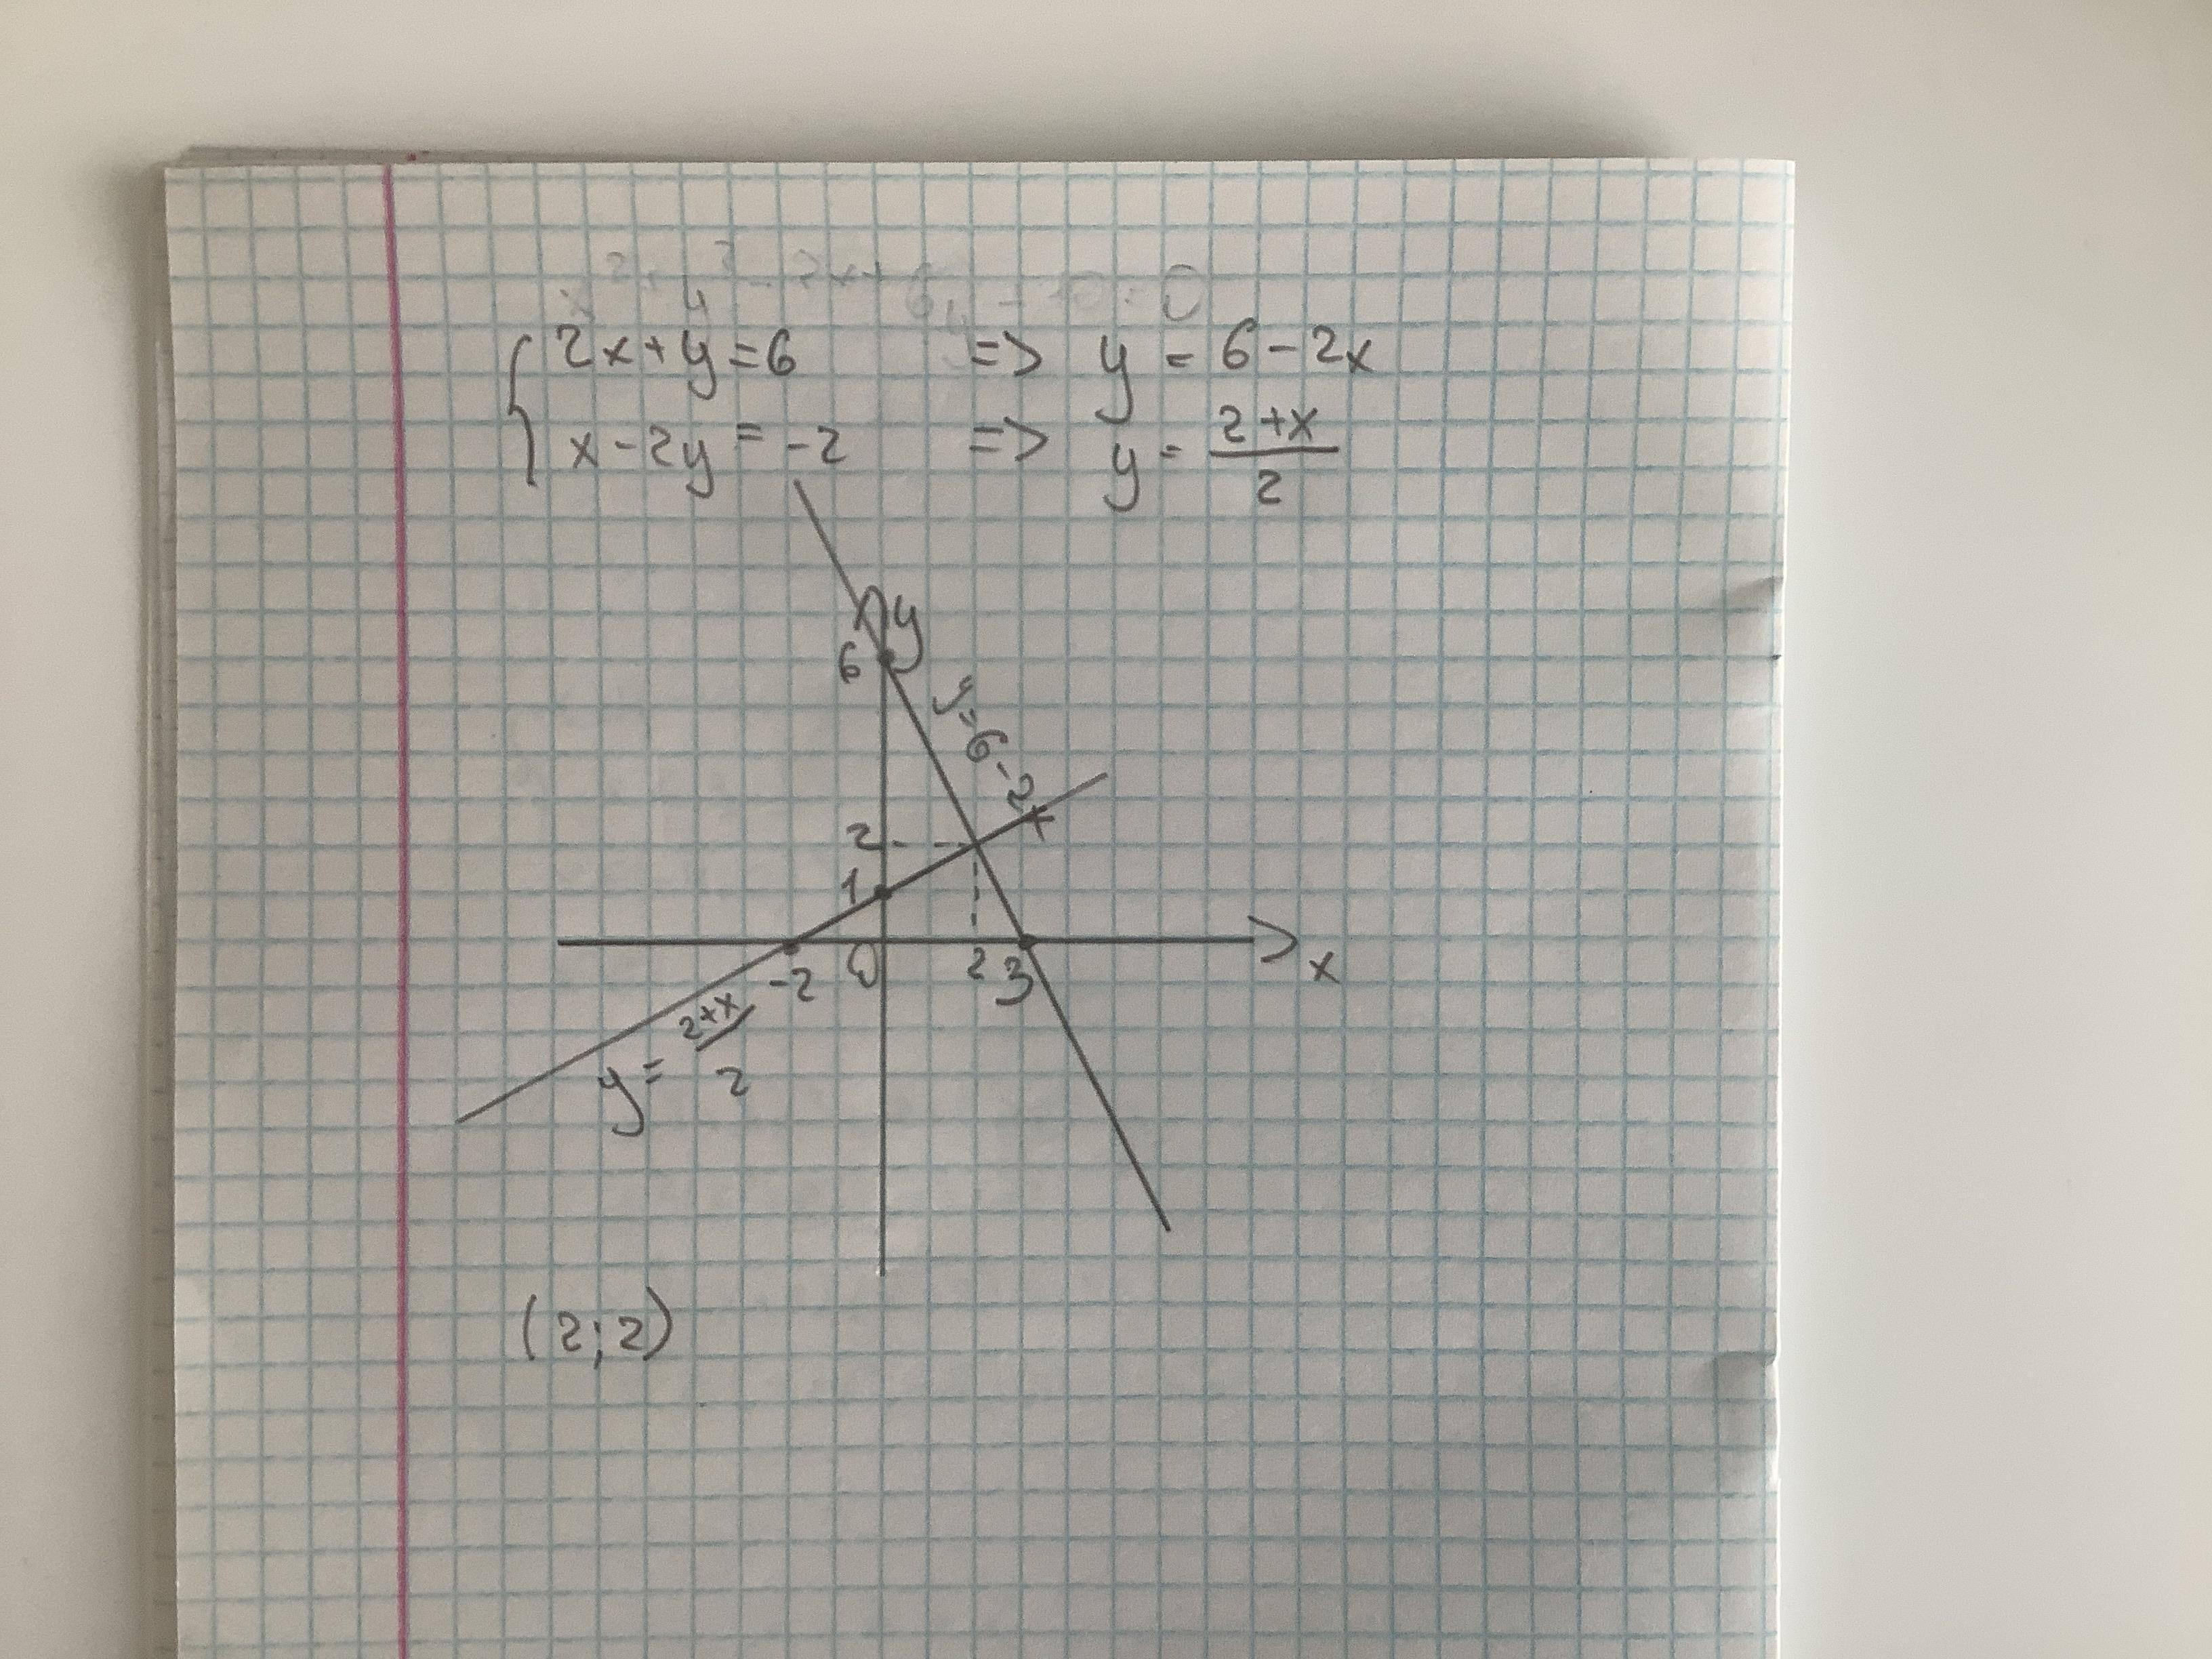 2x+y=6 => y = 6-2x
x-2y = -2 => y = (2+x)/2
y
6
y=6-2x
2
1
-2 0 2 3 x
y = (2+x)/2
(2;2)